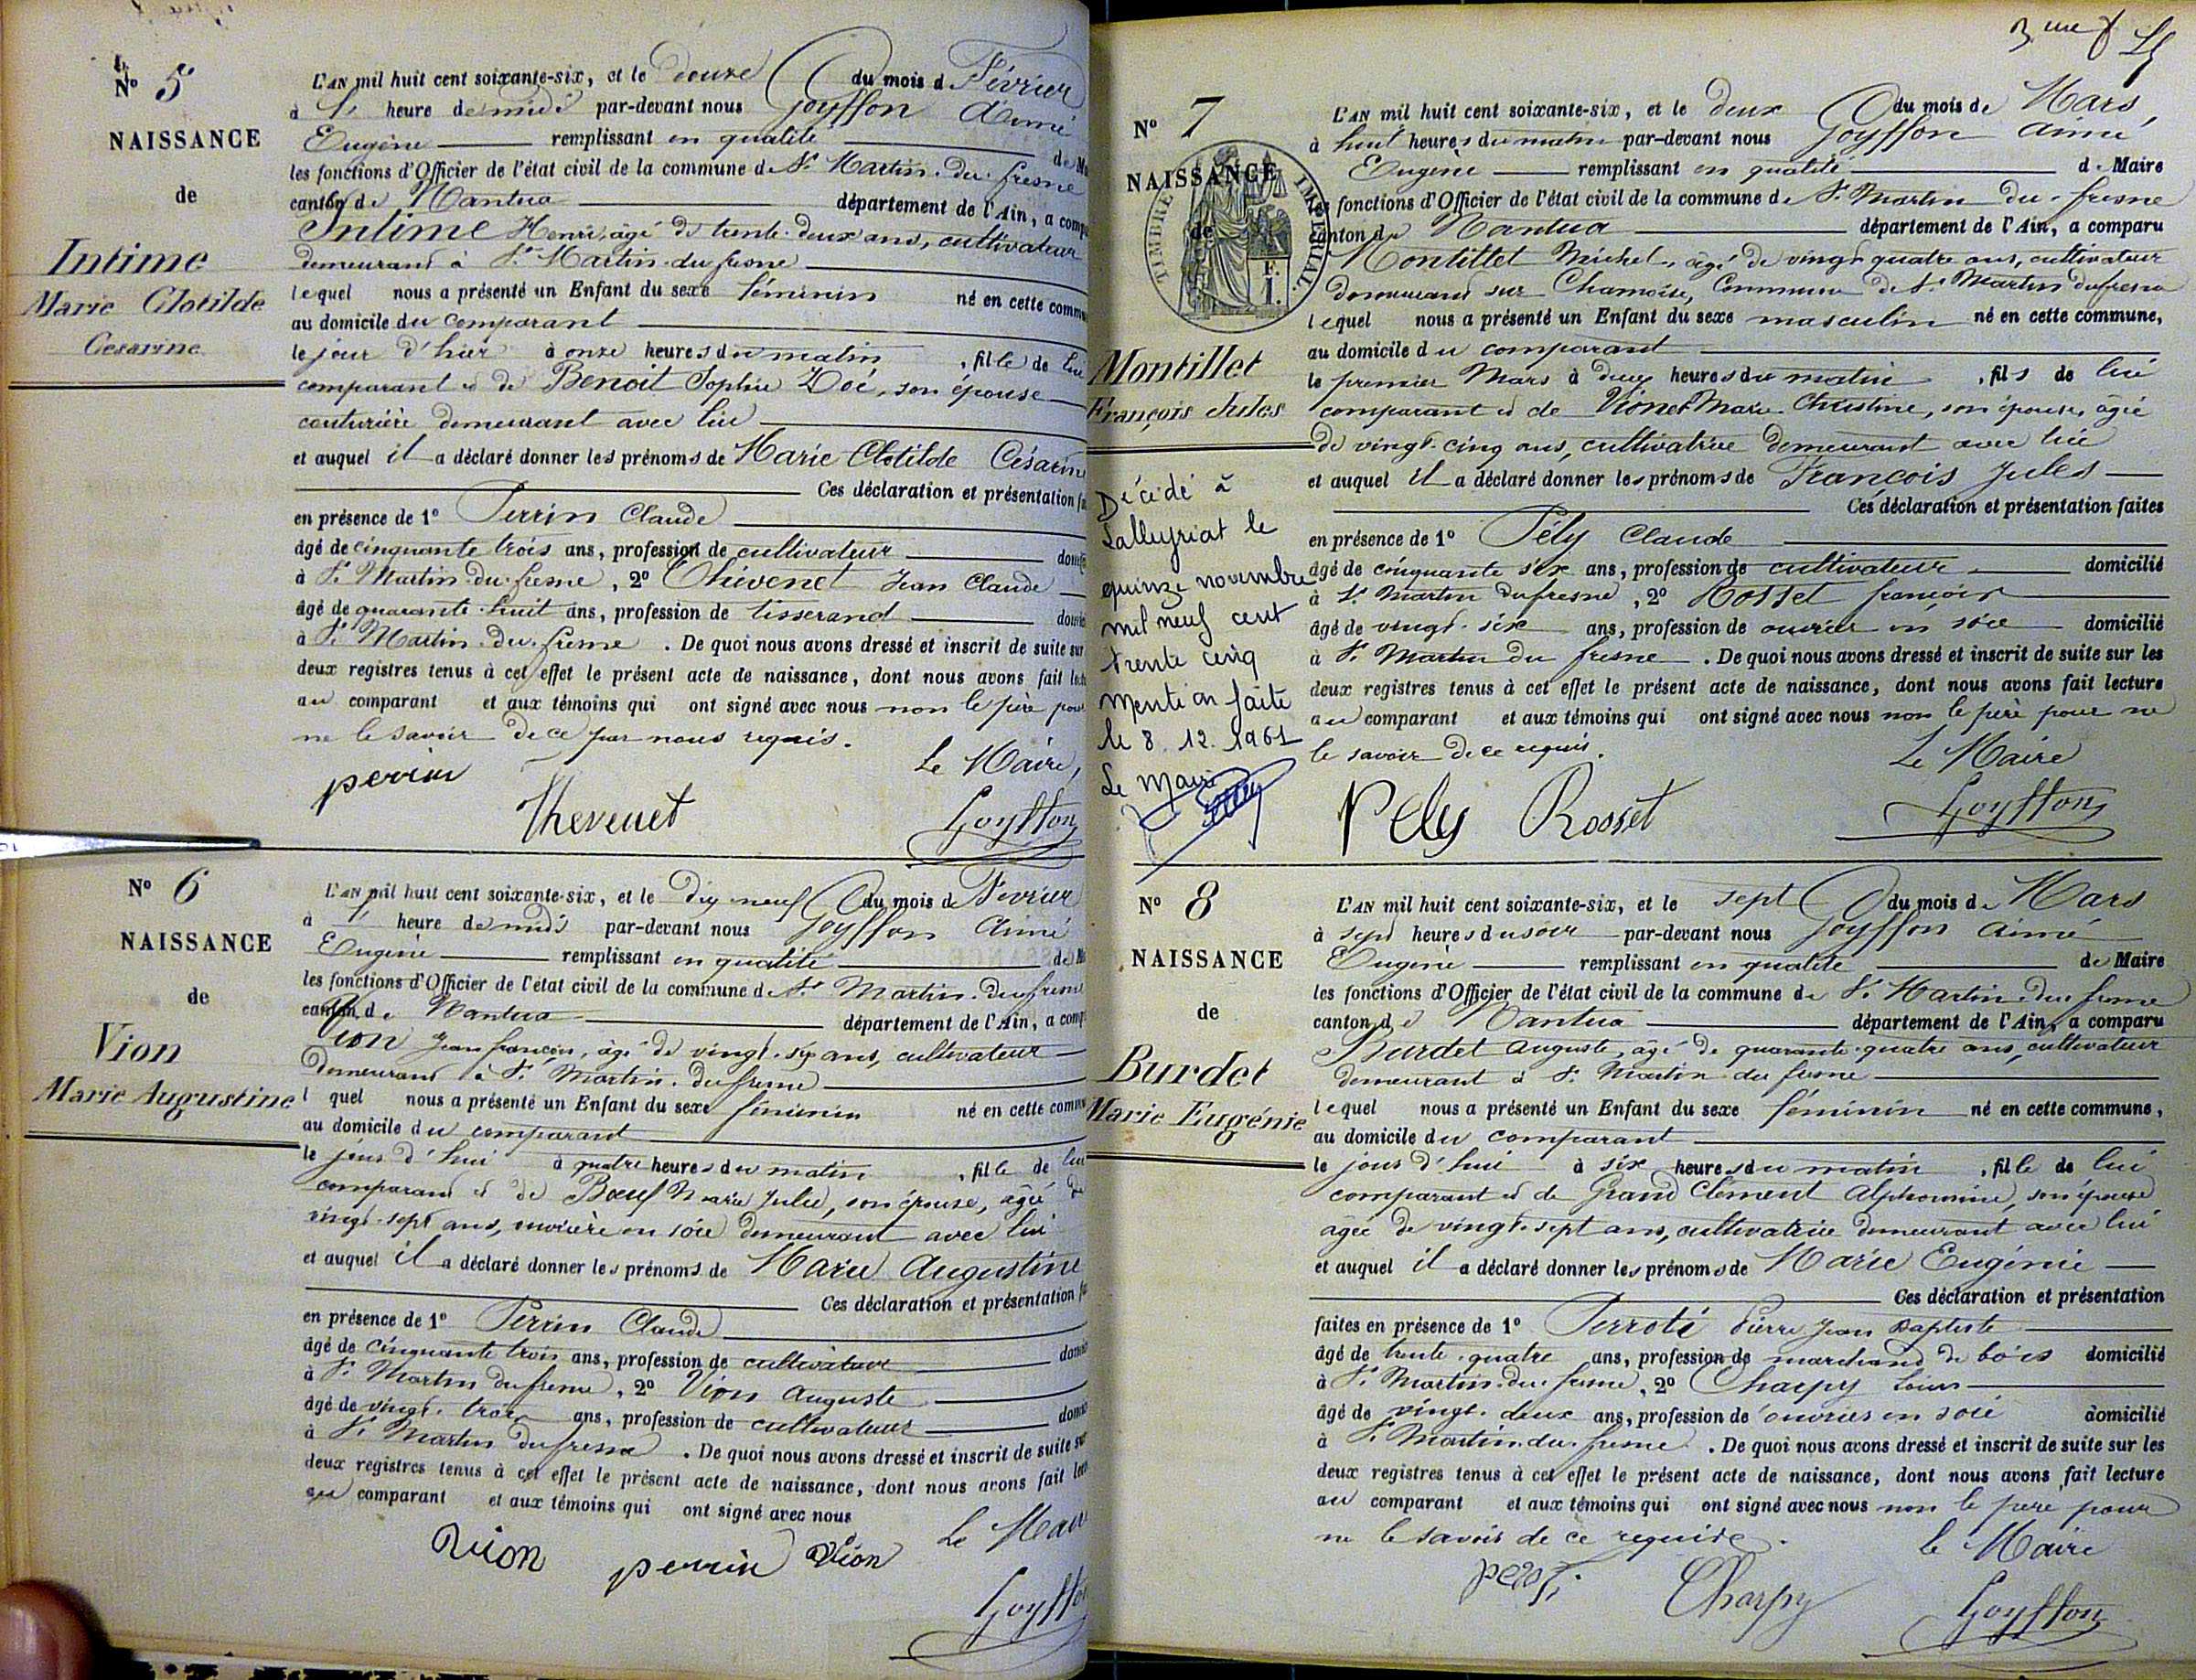 Nº 5
NAISSANCE
de
Intime
Marie Clotilde
Cesarine
L'AN mil huit cent soixante-six, et le douze du mois d Février
à 1 heure de midi par-devant nous Goyffon Aimé
Eugène remplissant en qualité de M
les fonctions d'Officier de l'état civil de la commune de St Martin-du-fresne
canton de Nantua département de l'Ain, a comp
Intime Henri, âgé de trente-deux ans, cultivateur
demeurant à St Martin-du-fresne
lequel nous a présenté un Enfant du sexe féminin né en cette commu
au domicile du comparant
le jour d'hier à onze heures du matin, fille de lui
comparant et de Benoit Sophie Zoé, son épouse
couturière demeurant avec lui
et auquel il a déclaré donner les prénoms de Marie Clotilde Césarine
Ces déclaration et présentation fa
en présence de 1º Perrin Claude
âgé de cinquante trois ans, profession de cultivateur domi
à St Martin-du-fresne, 2º Thévenet Jean Claude
âgé de quarante-huit ans, profession de tisserand domi
à St Martin-du-fresne. De quoi nous avons dressé et inscrit de suite sur
deux registres tenus à cet effet le présent acte de naissance, dont nous avons fait lect
au comparant et aux témoins qui ont signé avec nous non le père pour
ne le savoir de ce par nous requis.
Le Maire,
perrin
Thevenet
Goyffon
Nº 6
NAISSANCE
de
Vion
Marie Augustine
L'AN mil huit cent soixante-six, et le dix neuf du mois de Février
à 1 heure de midi par-devant nous Goyffon Aimé
Eugène remplissant en qualité de M
les fonctions d'Officier de l'état civil de la commune de St Martin-du-fresne
canton de Nantua département de l'Ain, a comp
Vion Jean françois, âgé de vingt-six ans, cultivateur
demeurant à St Martin-du-fresne
l quel nous a présenté un Enfant du sexe féminin né en cette commu
au domicile du comparant
le jour d'hui à quatre heures du matin, fille de lui
comparant et de Bœuf Marie Julie, son épouse, âgée de
vingt-sept ans, ouvrière en soie demeurant avec lui
et auquel il a déclaré donner les prénoms de Marie Augustine
Ces déclaration et présentation fa
en présence de 1º Perrin Claude
âgé de cinquante trois ans, profession de cultivateur domi
à St Martin du fresne, 2º Vion Auguste
âgé de vingt-trois ans, profession de cultivateur domi
à St Martin du fresne. De quoi nous avons dressé et inscrit de suite sur
deux registres tenus à cet effet le présent acte de naissance, dont nous avons fait lect
au comparant et aux témoins qui ont signé avec nous
Le Maire
Vion perrin Vion
Goyffon
Nº 7
NAISSANCE
de
TIMBRE IMPERIAL
Montillet
François Jules
Décédé à
Lalleyriat le
quinze novembre
mil neuf cent
trente cinq
mention faite
le 8.12.1961
Le Maire
L'AN mil huit cent soixante-six, et le deux du mois de Mars,
à huit heures du matin par-devant nous Goyffon Aimé
Eugène remplissant en qualité de Maire
les fonctions d'Officier de l'état civil de la commune de St Martin-du-fresne
canton de Nantua département de l'Ain, a comparu
Montillet Michel, âgé de vingt quatre ans, cultivateur
demeurant sur Chamoise, Commune de St Martin dufresne
lequel nous a présenté un Enfant du sexe masculin né en cette commune,
au domicile du comparant
le premier Mars à deux heures du matin, fils de lui
comparant et de Vionet Marie Christine, son épouse, âgée
de vingt-cinq ans, cultivatrice demeurant avec lui
et auquel il a déclaré donner les prénoms de François Jules
Ces déclaration et présentation faites
en présence de 1º Pély Claude
âgé de cinquante six ans, profession de cultivateur domicilié
à St Martin dufresne, 2º Rosset françois
âgé de vingt-six ans, profession de ouvrier en soie domicilié
à St Martin du fresne. De quoi nous avons dressé et inscrit de suite sur les
deux registres tenus à cet effet le présent acte de naissance, dont nous avons fait lecture
au comparant et aux témoins qui ont signé avec nous non le père pour ne
le savoir de ce requis.
Le Maire
Pely Rosset
Goyffon
Nº 8
NAISSANCE
de
Burdet
Marie Eugénie
L'AN mil huit cent soixante-six, et le sept du mois de Mars
à sept heures du soir par-devant nous Goyffon Aimé
Eugène remplissant en qualité de Maire
les fonctions d'Officier de l'état civil de la commune de St Martin-du-fresne
canton de Nantua département de l'Ain, a comparu
Burdet Auguste, âgé de quarante-quatre ans, cultivateur
demeurant à St Martin du fresne
lequel nous a présenté un Enfant du sexe féminin né en cette commune,
au domicile du comparant
le jour d'hui à six heures du matin, fille de lui
comparant et de Grand Clément Alphonsine, son épouse
âgée de vingt-sept ans, cultivatrice demeurant avec lui
et auquel il a déclaré donner les prénoms de Marie Eugénie
Ces déclaration et présentation
faites en présence de 1º Perroté Pierre Jean Baptiste
âgé de trente-quatre ans, profession de marchand de bois domicilié
à St Martin-du-fresne, 2º Charpy Louis
âgé de vingt-deux ans, profession de ouvrier en soie domicilié
à St Martin-du-fresne. De quoi nous avons dressé et inscrit de suite sur les
deux registres tenus à cet effet le présent acte de naissance, dont nous avons fait lecture
au comparant et aux témoins qui ont signé avec nous non le père pour
ne le savoir de ce requise.
le Maire
Charpy
Goyffon